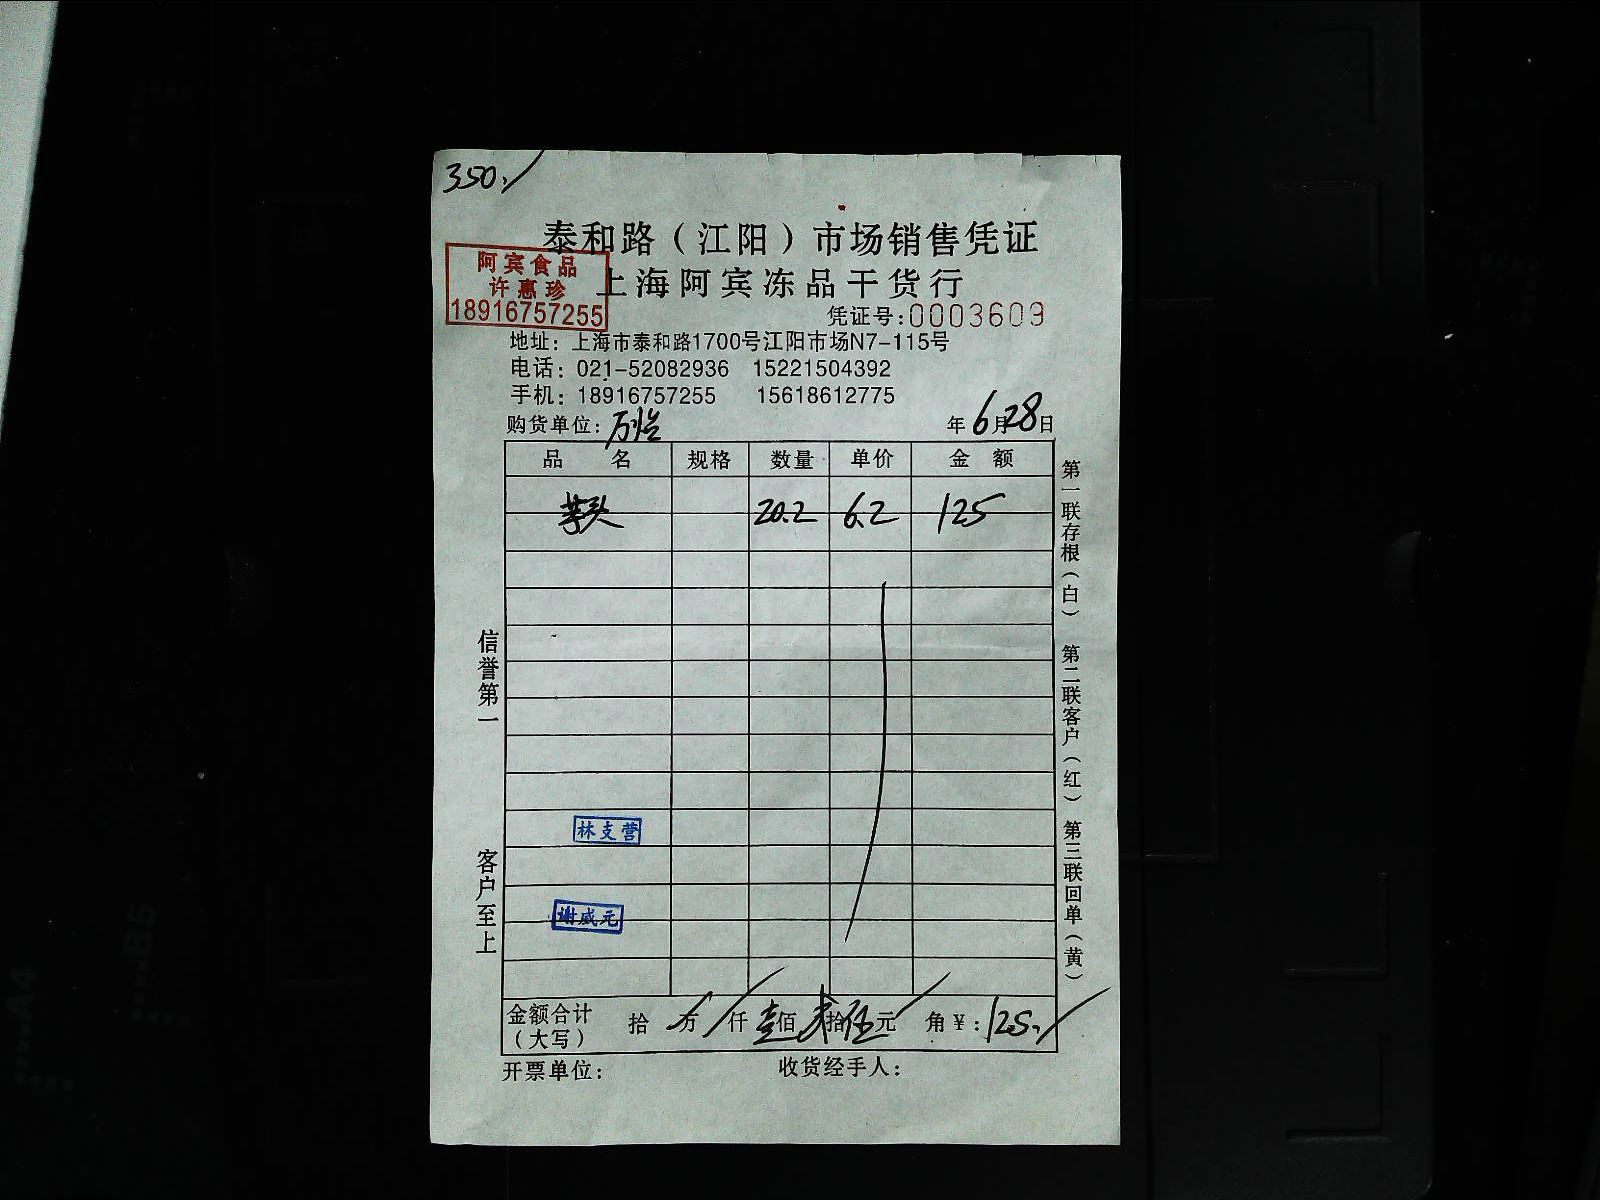 350.
泰和路（江阳）市场销售凭证
阿宾食品
许惠珍
18916757255
上海阿宾冻品干货行
凭证号:0003609
地址：上海市泰和路1700号江阳市场N7-115号
电话：021-52082936 15221504392
手机：18916757255 15618612775
购货单位： 年6月28日
品 名 规格 数量 单价 金 额
芋头 20.2 6.2 125
信誉第一
客户至上
第一联存根（白） 第二联客户（红） 第三联回单（黄）
林支营
谢威元
金额合计（大写） 拾 万 仟壹佰贰拾伍元 角￥:125.
开票单位： 收货经手人：